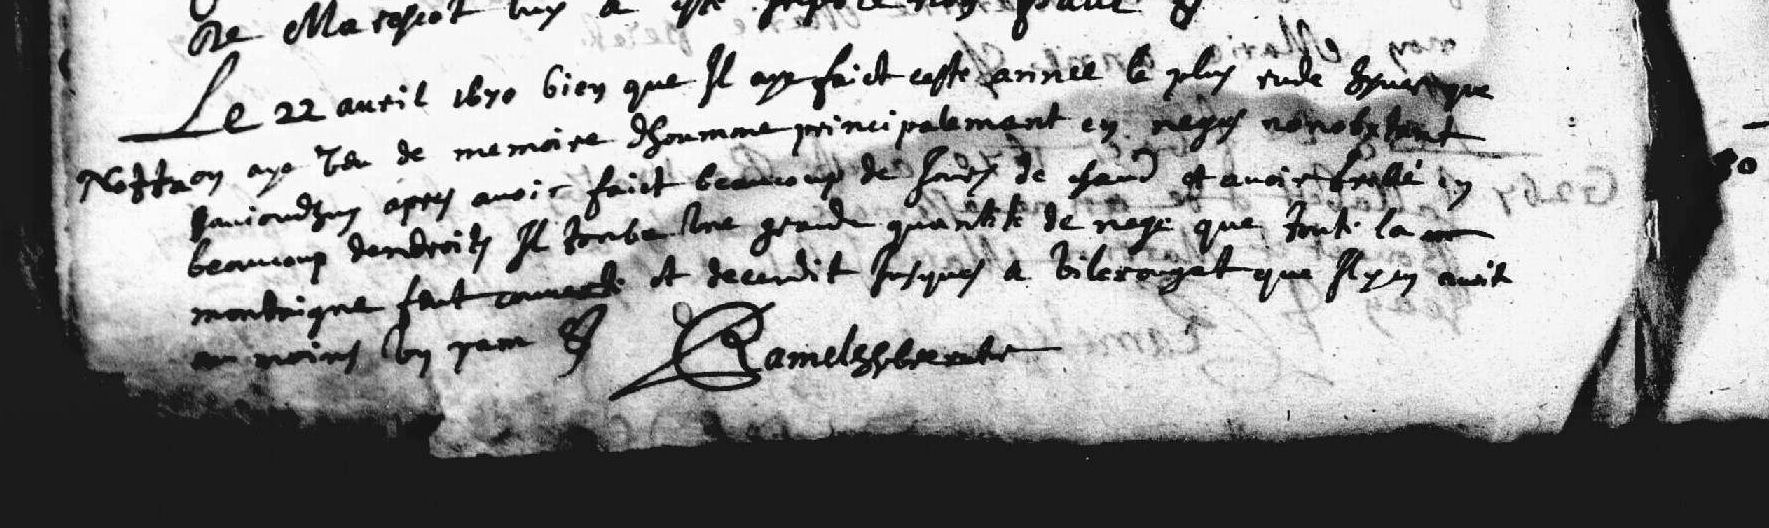 De Marescot luy a este
Le 22 auril 1670 bien que Il aye faict ceste annee le plus rude hyuer que
Notta on aye veu de memoire dhoumme principalement en neges nonobstant
apres auoir faict beaucoup de de chaud et auoir en
beaucoup dendroits Il tomba vne grande quantite de nege que toute la
montaigne feut couuerte et decendit jusques a Vilerouget que Il y en auoit
au moins vn pam
Ramel